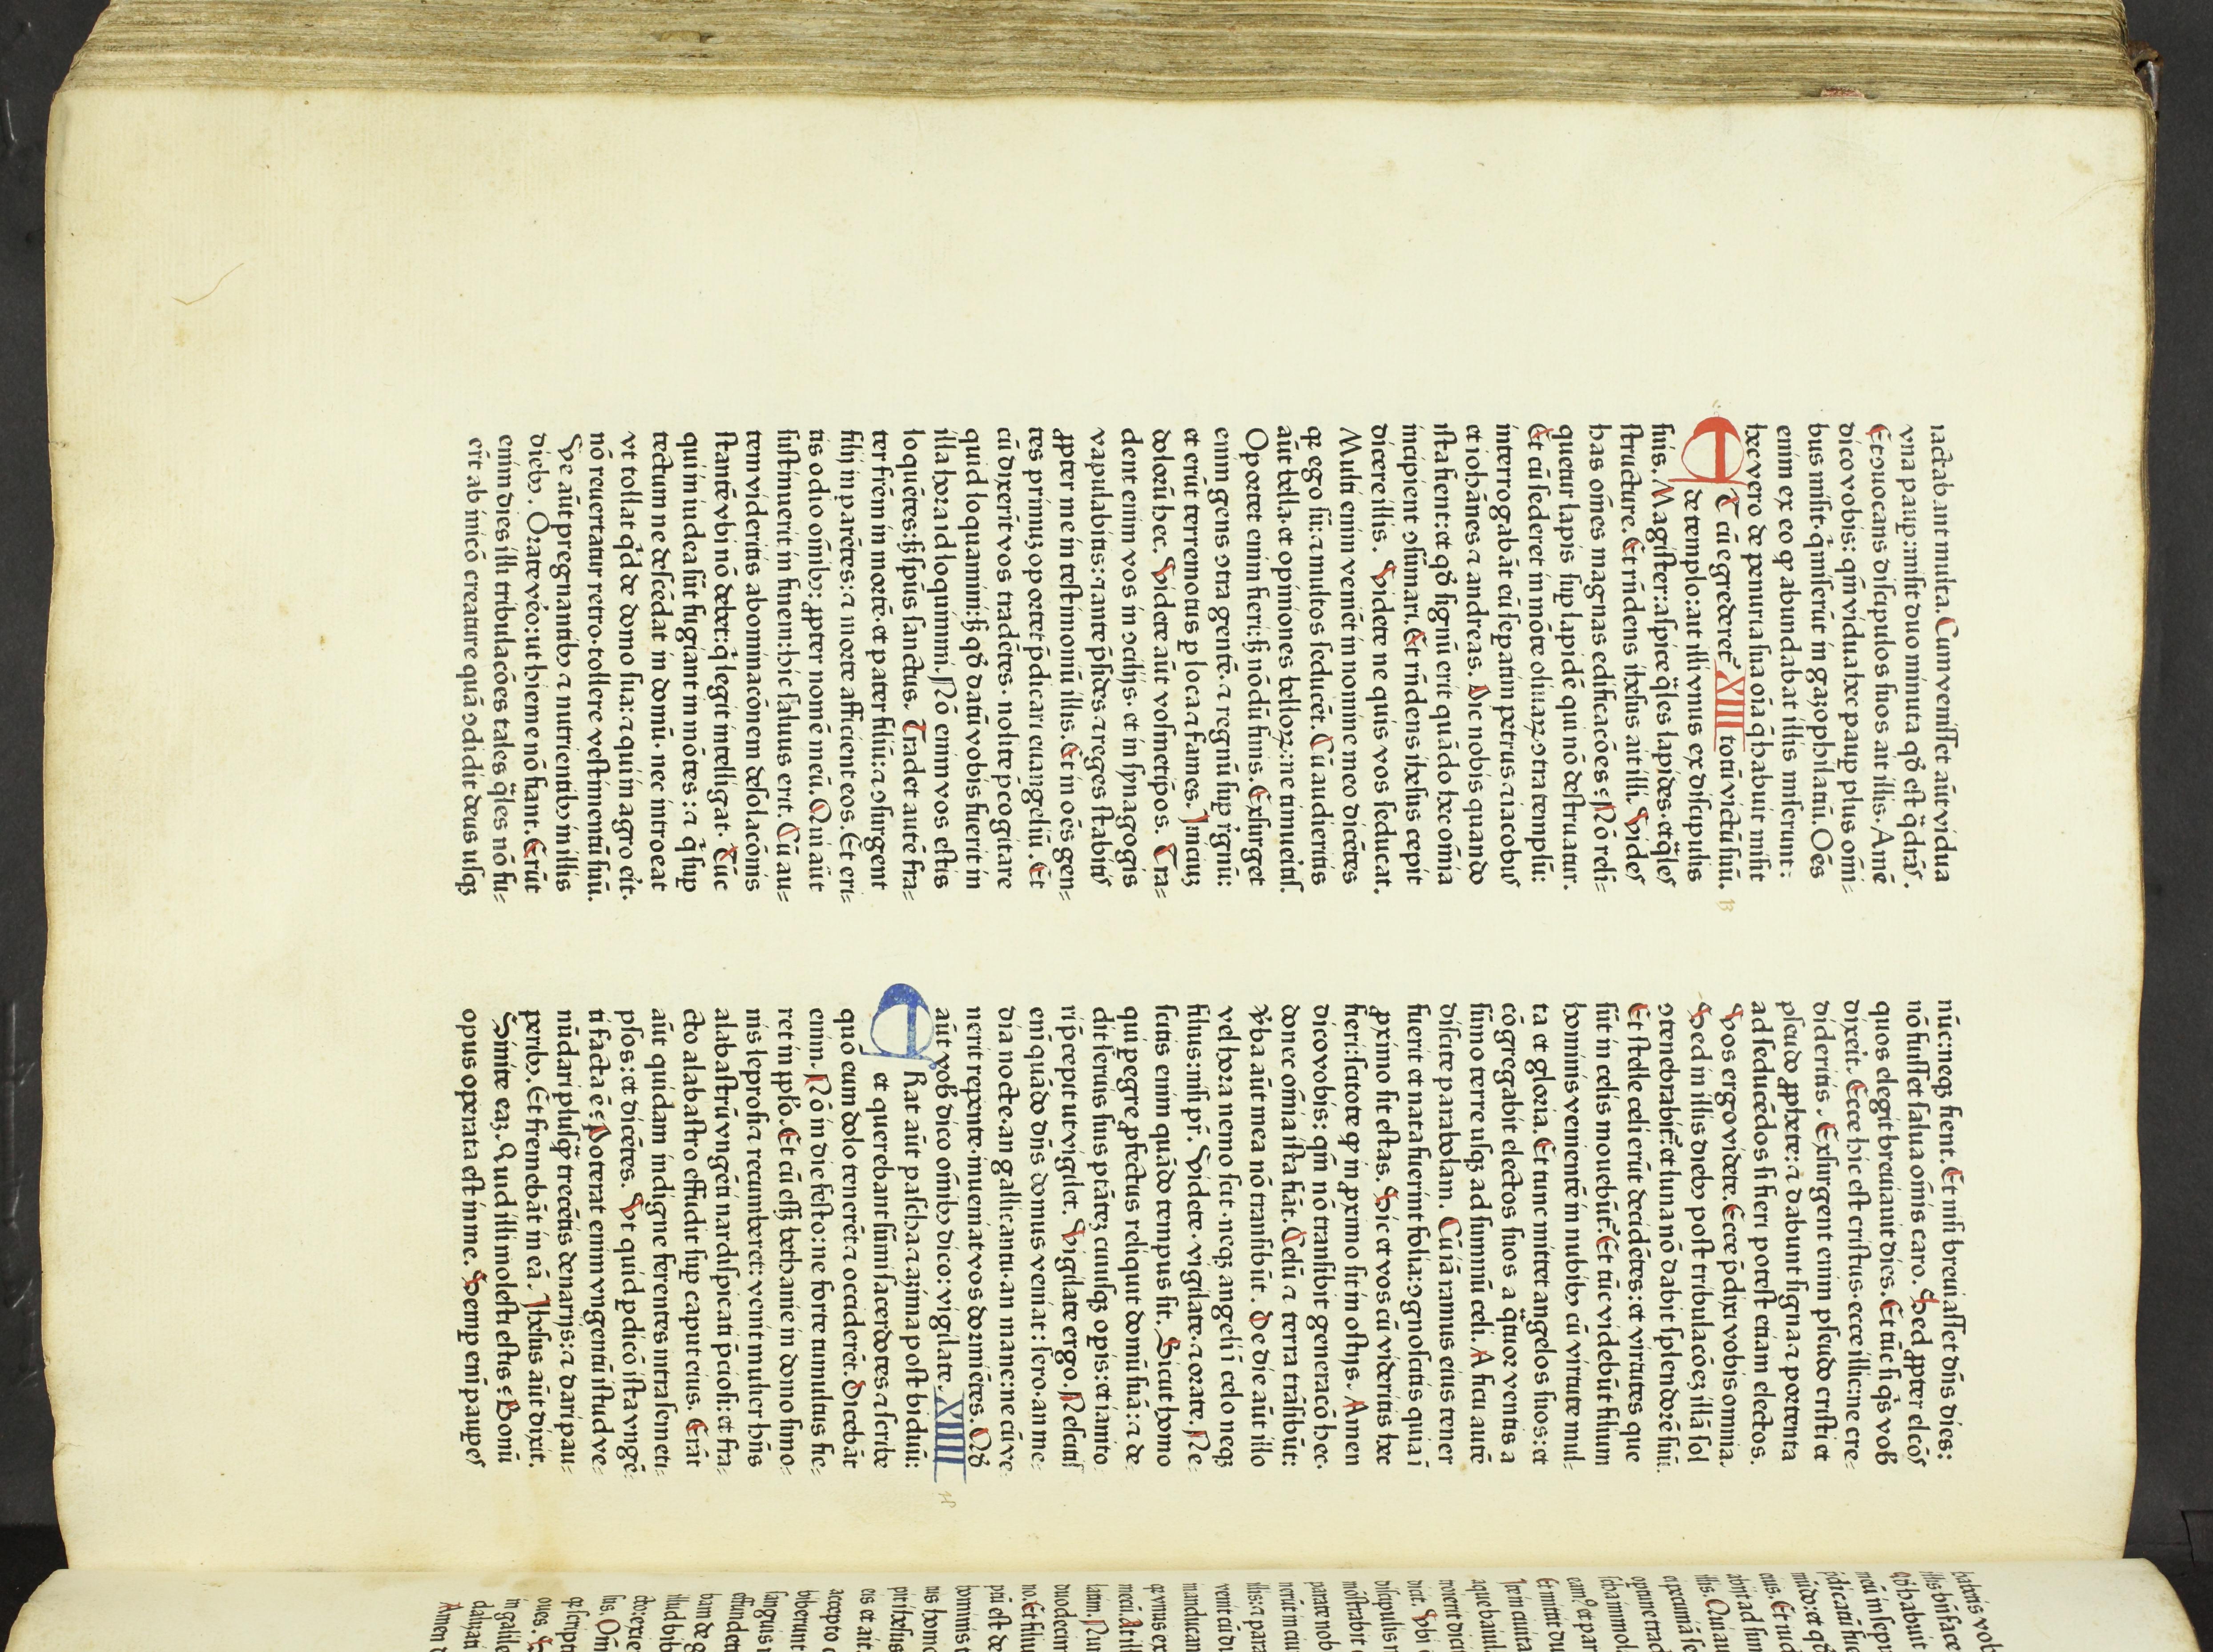 iactabant multa. Cum veniſſet aūt vidua
vna paup: miſit duo minuta qd̓ eſt q̄drās.
Et ↄuocans diſcipulos ſuos ait illis. Amē
dico vobis: qm̄ vidua hec paup plus om̄i-
bus miſit. q̇ miſerūt in gazophilatiū. Oēs
enim ex eo qꝙ abundabat illis miſerunt:
hec vero de penuria ſua oīa q̄ habuit miſit
totū victū ſuū.
ET cū egrederet᷑ XIII
de templo: ait illi vnus ex diſcipulis
ſuis. Magiſter: aſpice q̄les lapides. et q̄les
ſtructure. Et rn̄dens iheſus ait illi. Vides
has om̄es magnas edificacōes: Nō reli-
quetur lapis ſup lapidē qui nō deſtruatur.
Et cū ſederet in mōte oliuaꝝ ↄtra templū:
interrogabāt eū ſepatim petrus ⁊ iacobus
et iohānes ⁊ andreas. Dic nobis quando
iſta fient: et qd̓ ſignū erit quādo hec om̄ia
incipient ↄſūmari. Et rn̄dens iheſus cepit
dicere illis. Videte ne quis vos ſeducat.
Multi enim veniēt in nomine meo dicētes
qꝛ ego ſū: ⁊ multos ſeducēt. Cū audieritis
aūt bella. et opiniones belloꝝ: ne timueritis.
Oportet enim fieri: ſꝫ nōdū finis. Exſurget
enim gens ↄtra gentē. ⁊ regnū ſup r̓gnū:
et erūt terremotus p loca ⁊ fames. Iniciuꝫ
dolorū hec. Videte aūt voſmetip̄os. Tra-
dent enim vos in ↄcilijs. et in ſynagogis
vapulabitis: ⁊ ante p̄ſides ⁊ reges ſtabitis
ꝓpter me in teſtimoniū illis. Et in oēs gen-
tes primuꝫ oportet p̄dicari euangeliū. Et
cū duxerīt vos tradētes. nolite p̄cogitare
quid loquamini: ſꝫ qd̓ datū vobis fuerit in
illa hora id loquimini. Nō enim vos eſtis
loquētes: ſꝫ ſpūs ſanctus. Tradet autē fra-
ter frēm in mortē. et pater filiū: ⁊ ↄſurgent
filij in parētes: ⁊ morte afficient eos. Et eri-
tis odio om̄ibꝫ: ꝓpter nomē meū. Qui aūt
ſuſtinuerit in finem: hic ſaluus erit. Cū au-
tem videritis abominacōnem deſolacōnis
ſtantē vbi nō debet: q̇ legit intelligat. Tūc
qui in iudea ſūt fugiant in mōtes: ⁊ q̇ ſup
tectum ne deſcēdat in domū. nec introeat
vt tollat qd̓ de domo ſua: ⁊ qui in agro ēit.
nō reuertatur retro. tollere veſtimentū ſuū.
Ve aūt pregnantibꝫ ⁊ nutrientibꝫ in illis
diebꝫ. Orate vēo: ut hieme nō fiant. Erūt
enim dies illi tribulacōes tales q̄les nō fu-
erūt ab inicō creature quā ↄdidit deus uſqꝫ
nūc: neqꝫ fient. Et niſi breuiaſſet dn̄s dies:
nō fuiſſet ſalua om̄is caro. Sed ꝓpter elcōs
quos elegit breuiauit dies. Et tūc ſi q̇s vob̓
dixerit. Ecce hic eſt criſtus. ecce illic: ne cre-
dideritis. Exſurgent enim pſeudo criſti et
pſeudo ꝓphete: ⁊ dabunt ſigna ⁊ portenta
ad ſeducēdos ſi fieri poteſt etiam electos.
Vos ergo videte. Ecce p̄dixi vobis omnia.
Sed in illis diebꝫ poſt tribulacōeꝫ illā ſol
ↄtenebrabit᷑: et luna nō dabit ſplendorē ſuū.
Et ſtelle celi erūt decidētes: et virtutes que
ſūt in celis mouebūt᷑. Et tūc videbūt filium
hominis venientē in nubibꝫ cū virtute mul-
ta et gloria. Et tunc mittet angelos ſuos: et
cōgregabit electos ſuos a q̄tuor ventis a
ſūmo terre uſqꝫ ad ſummū celi. A ficu autē
diſcite parabolam. Cū iā ramus eius tener
fuerit et nata fuerint folia: ↄgnoſcitis quia ī
ꝓximo ſit eſtas. Sic et vos cū videritis hec
fieri: ſcitote qꝙ in ꝓximo ſit in oſtijs. Amen
dico vobis: qm̄ nō tranſibit generacō hec.
donec om̄ia iſta fiāt. Celū ⁊ terra trāſibūt:
v̓ba aūt mea nō tranſibūt. De die aūt illo
vel hora nemo ſcit. neqꝫ angeli ī celo neqꝫ
filius: niſi pr̄. Videte. vigilate. ⁊ orate. Ne-
ſcitis enim quādo tempus ſit. Sicut homo
qui pegre ꝓfectus reliquit domū ſuā: ⁊ de-
dit ſeruis ſuis ptātēꝫ cuiuſqꝫ opis: et ianito
ri p̄cepit ut vigilet. Vigilate ergo. Neſcitis
enī quādo dn̄s domus veniat: ſero. an me-
dia nocte. an gallicantu. an mane: ne cū ve-
nerit repente. inueniat vos dormiētes. Qd̓
aūt vob̓ dico om̄ibꝫ dico: vigilate. XIIII
ERat aūt paſcha ⁊ azima poſt biduū:
et querebant ſūmi ſacerdotes ⁊ ſcribe
quo eum dolo tenerēt ⁊ occiderēt. Dicebāt
enim. Nō in die feſto: ne forte tumultus fie-
ret in pplo. Et cū eſſꝫ bethanie in domo ſimo-
nis leproſi ⁊ recumberet: venit mulier hn̄s
alabaſtrū vngēti nardi ſpicati p̄cioſi: et fra-
cto alabaſtro effudit ſup caput eius. Erāt
aūt quidam indigne ferentes intra ſemeti-
pſos: et dicētes. Vt quid pdicō iſta vngē-
ti facta ē: Poterat enim vngentū iſtud ve-
nūdari pluſq̄ trecētis denarijs: ⁊ dari pau-
peribꝫ. Et fremebāt in eā. Iheſus aūt dixit.
Sinite eaꝫ. Quid illi moleſti eſtis: Bonū
opus operata eſt in me. Semp enī paupes